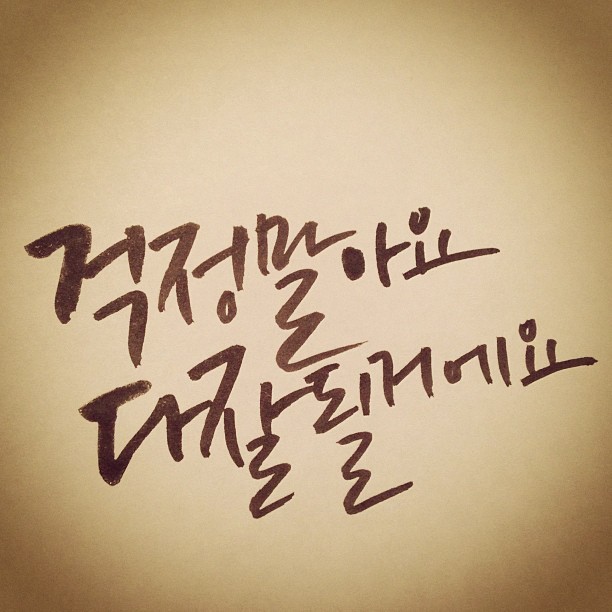 걱정말아요
다잘될거에요